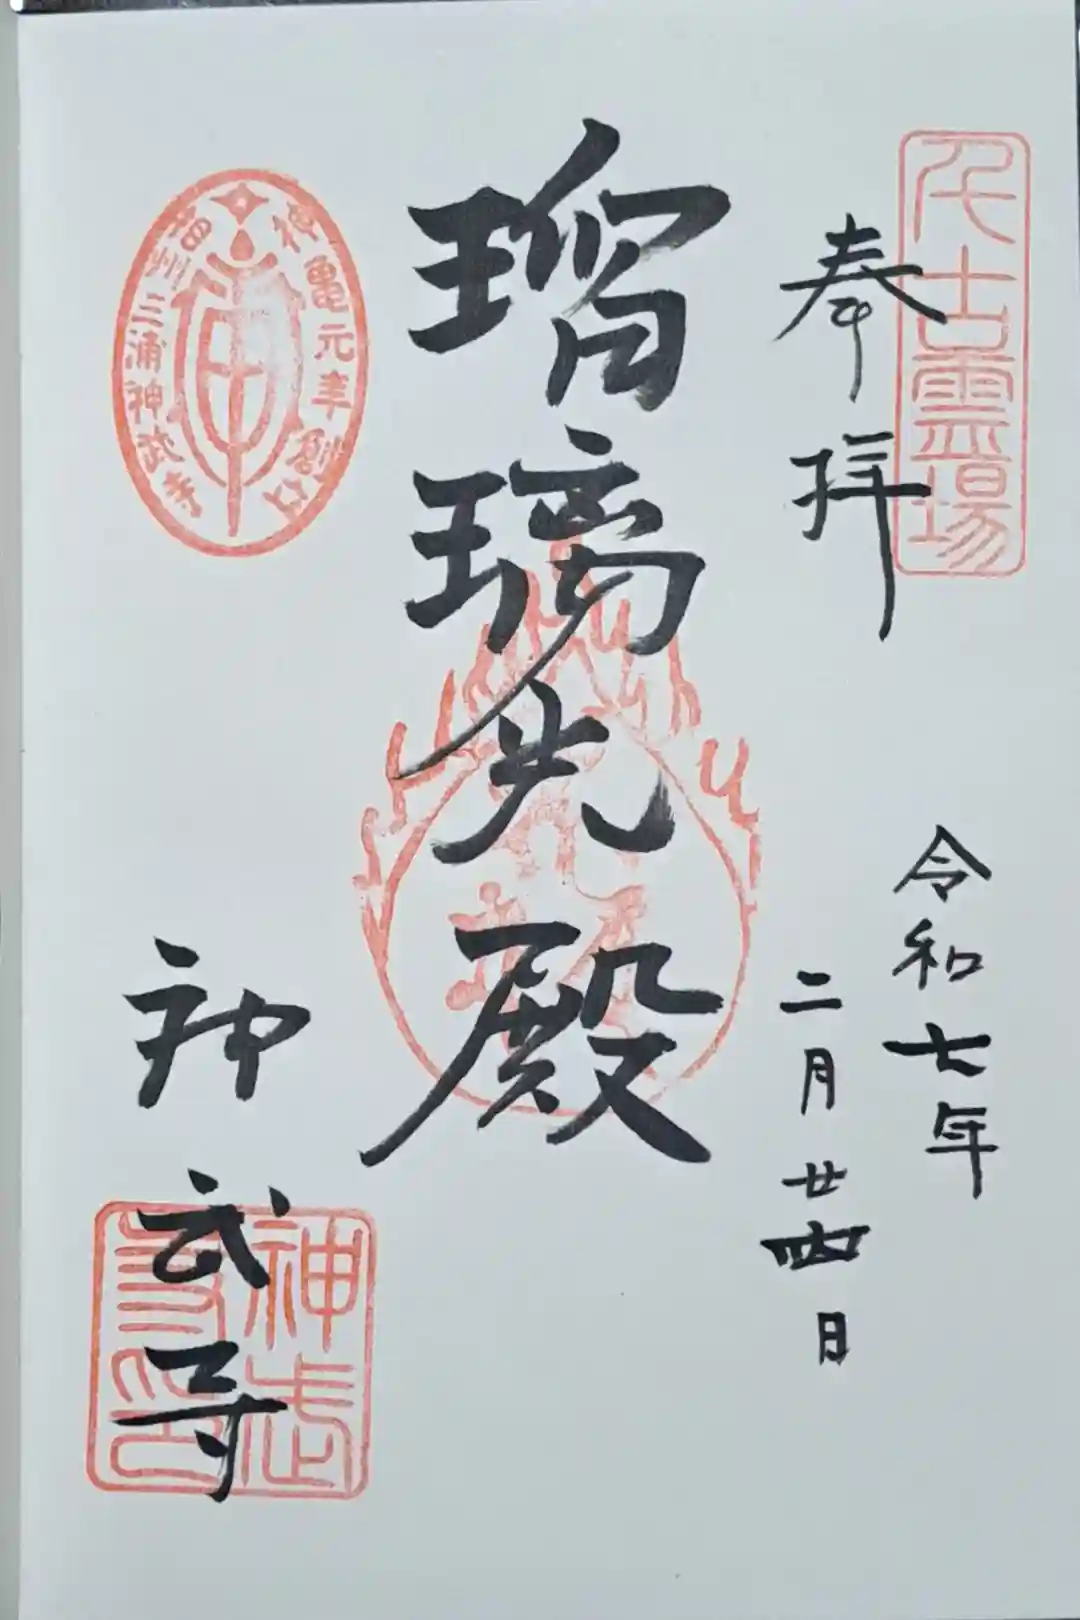 奉拝
令和七年
二月廿四日
瑠璃光殿
神武寺
千古霊場
神亀元年創口
相州三浦神武寺
神武寺印